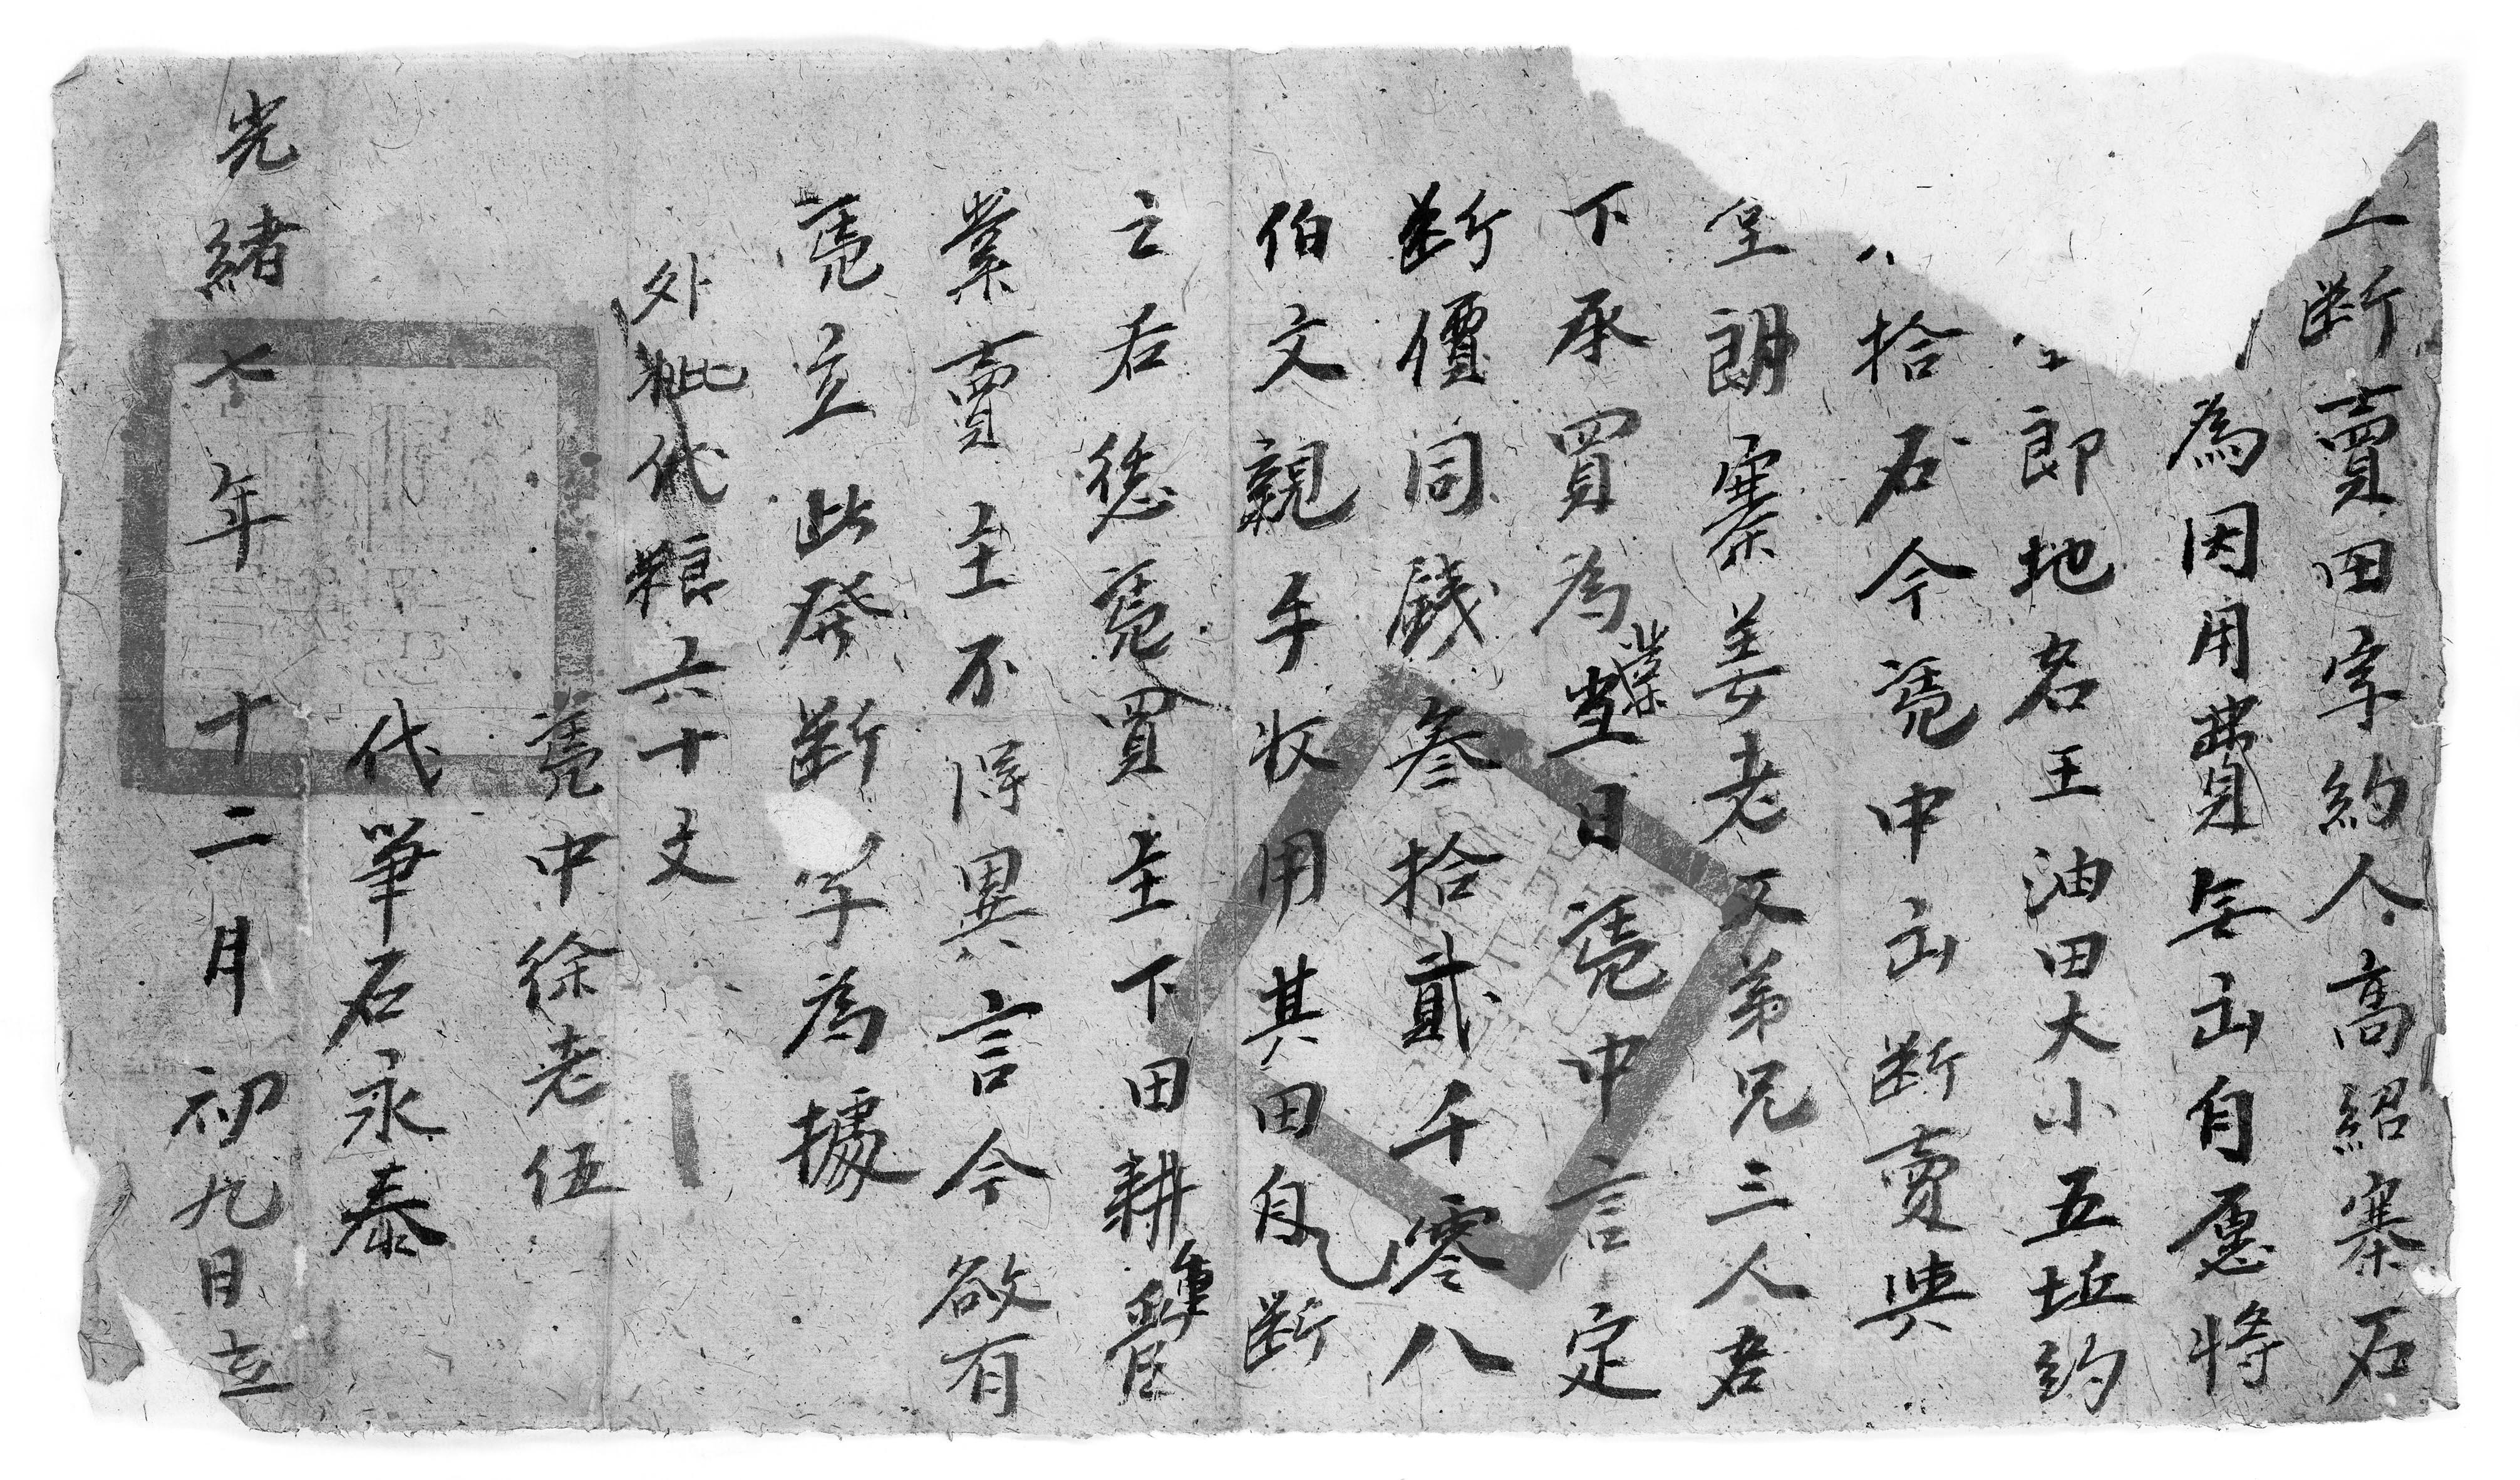 立断賣田字約人高紹寨石
為因用費無出自愿將
郎地名王油田大小五坵約
拾石今凴中出断賣與
堂朗寨姜老又弟兄三人名
下承買為業當日凴中言定
断價同錢叁拾貳千零八
伯文親手收用其田自断
之后凴買主下田耕種管
業賣主不得異言今欲有
凴立此發断字為據
外批代粮六十文
凴中徐老伍
代筆石永泰
光緒七年十二月初九日立